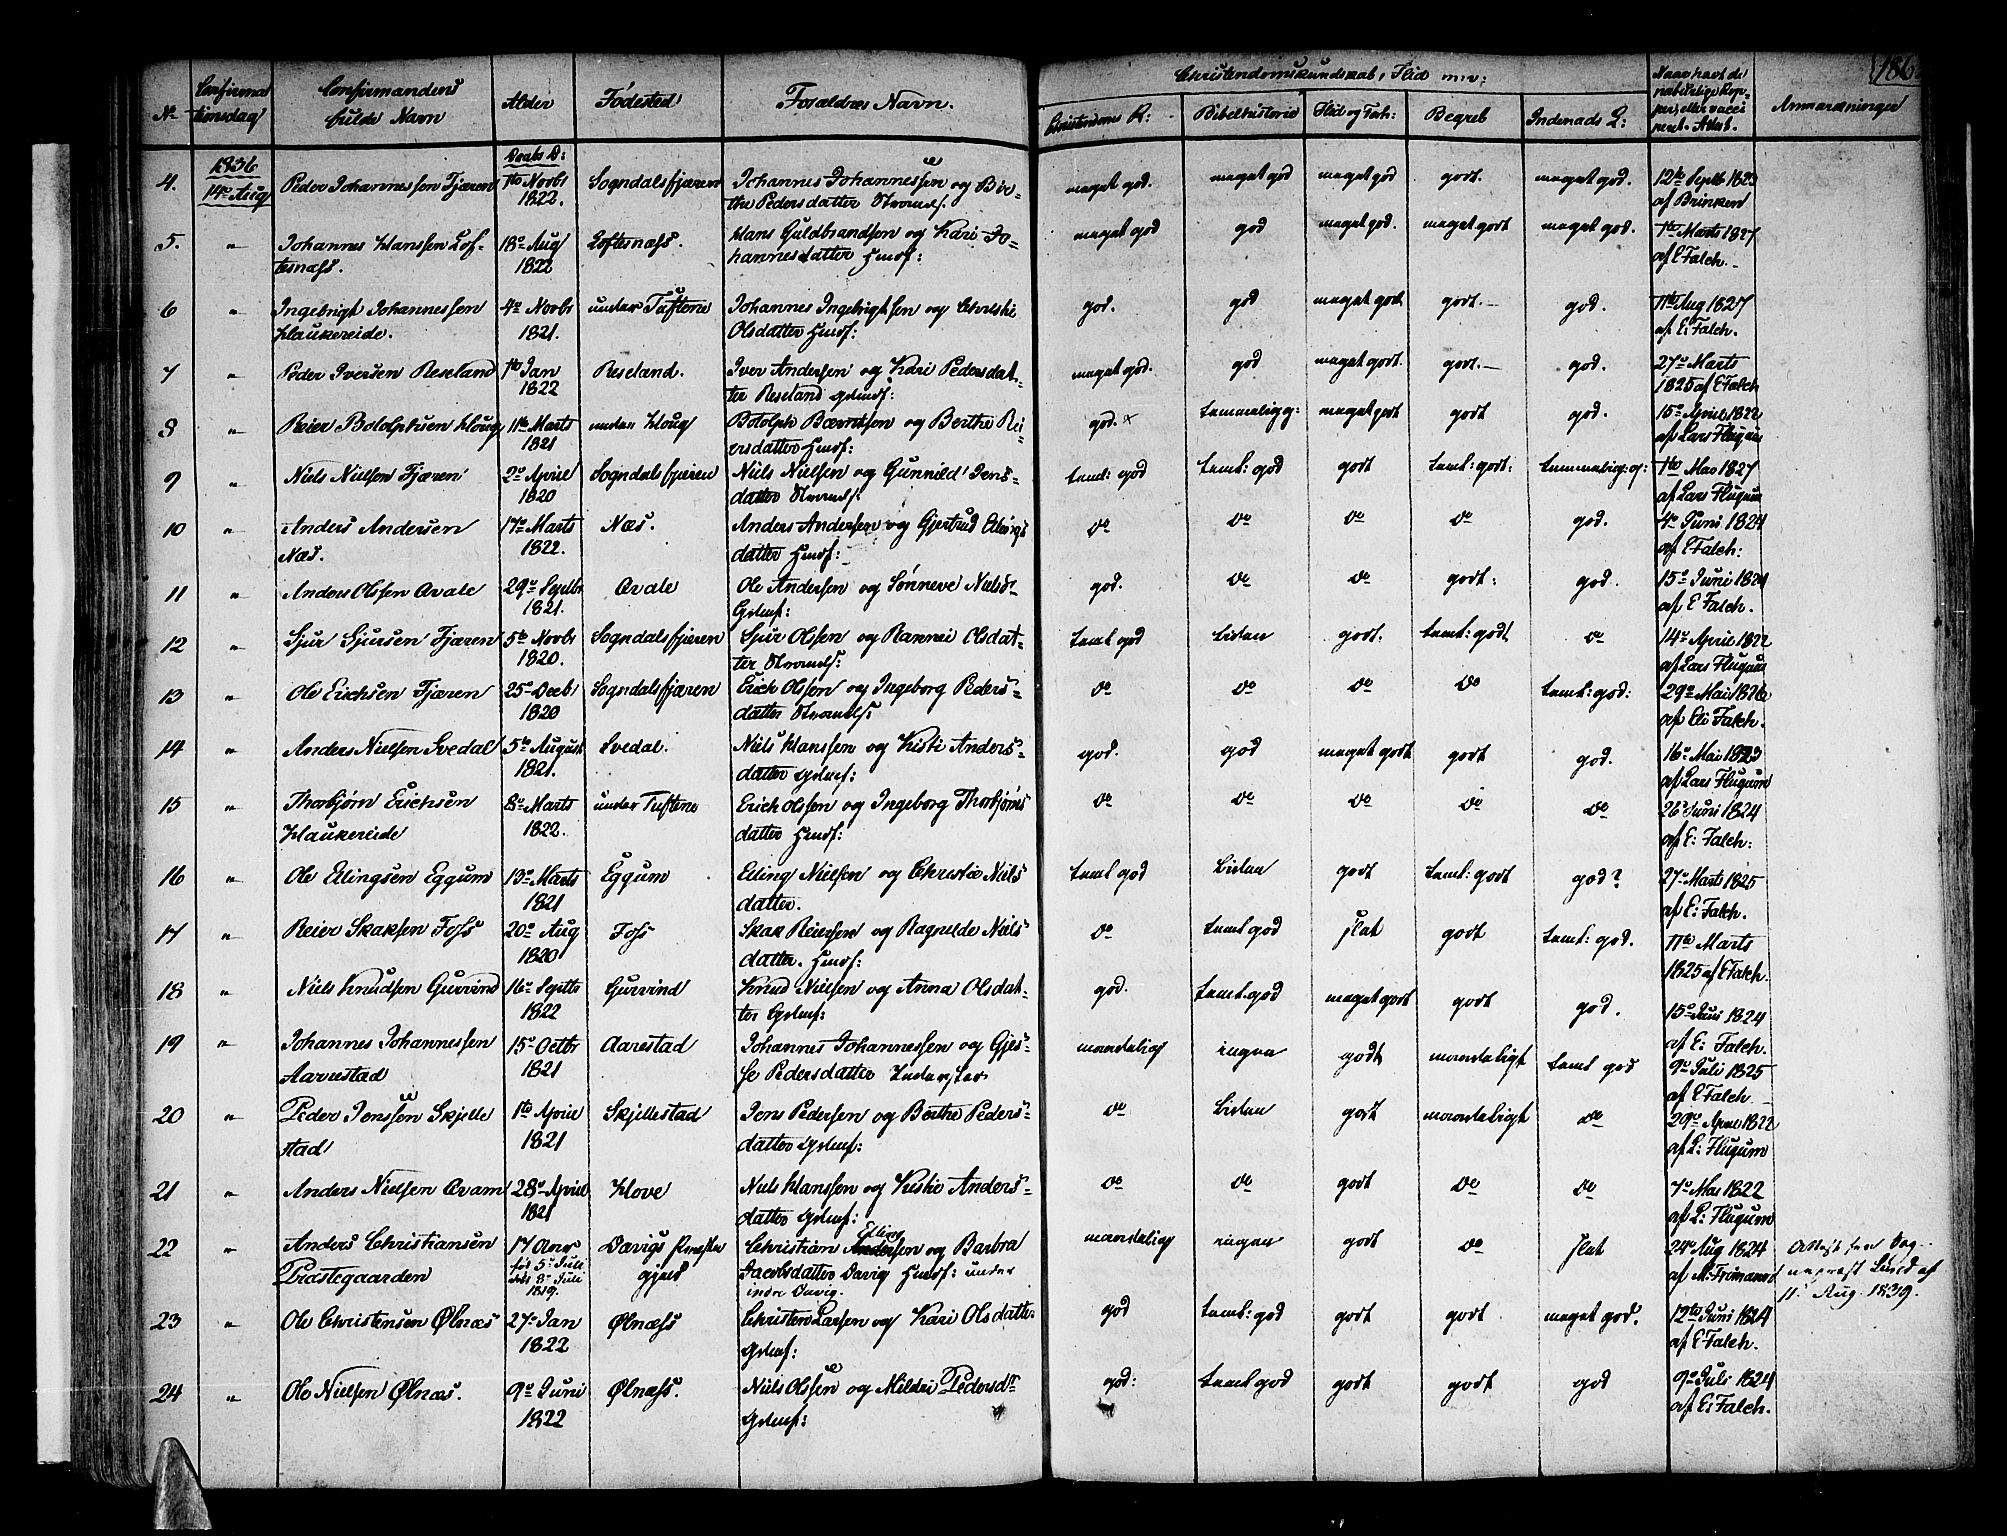 186
No Confirmationsdag Confirmandens fulde Navn Alder Fødested Forældres Navn. Christendomskundskab, Flid m: v: Naar havt de naturlige Kopper, eller vaccineret. Attest. Anmærkninger
Christendoms K: Bibelhistorie Flid og Forh: Begreb Indenads L:
1836 Daabs D:
4. 14de Aug Peder Johannessen Fjæren 1te Novbr 1822. Sogndalsfjæren Johannes Johannessen og Birthe Pedersdatter Strands. meget god. meget god meget god godt. meget god. 12te Septb 1823 af Brinken
5. " Johannes Hanssen Loftesnæss. 18de Aug 1822 Loftesnæss. Hans Guldbrandsen og Kari Johannesdatter Husf: meget god god meget god. meget godt meget god. 1te Marts 1827 af E Falch.
6 " Ingebrigt Johannessen Haukereide. 4de Novbr 1821. under Tuftene Johannes Ingebrigtsen og Christie Olsdatter Husf: god. god meget godt godt. god. 11te Aug 1827 af E: Falch.
7 " Peder Iversen Reseland 1te Jan 1822 Reseland. Iver Andersen og Kari Pedersdatter Reseland Gdmf: meget god. god meget godt. godt. god. 27de Marts 1825 af E Falch
8 " Reier Botolphsen Houg 11te Marts 1821 under Houg Botolph Berntsen og Berthe Reiersdatter Husf: god. x temmelig g: meget godt godt god. 15de April 1822 af Lars Flugum
9 " Niels Nielsen Fjæren 2de April 1820 Sogndalsfjæren Niels Nielsen og Gunnild Jensdatter Strands: teml: god teml: god godt teml: godt: temmelig: g: 1te Mai 1827 af Lars Flugum
10 " Anders Andersen Næs. 17de Marts 1822. Næs. Anders Andersen og Gjertrud Ellingsdatter Husf: do do do do god. 4de Juni 1824 af E Falch:
11 " Anders Olssen Qvale 29de Septbr 1821. Qvale Ole Andersen og Sønneve Nielsd Gdmf: god. do do godt: god. 15de Juni 1824 af E Falch.
12 " Sjur Sjursen Fjæren 5te Novbr 1820. Sogndalsfjæren Sjur Olssen og Rannei Olsdatter Strands: teml god Liden godt. teml: godt do 14de April 1822 af Lars Flugum
13 " Ole Erichsen Fjæren 25de Decbr 1820 Sogndalsfjæren Erich Olssen og Ingeborg Pedersdatter Strands: do do do do teml: god: 29de Mai 1826 af Eli Falch.
14 " Anders Nielsen Svedal 5te August 1821. Svedal. Niels Hanssen og Kisti Andersdatter Gdmf: god. god meget godt godt god. 16de Mai 1823 af Lars Flugum
15 " Thorbjørn Erichsen Haukereide 8de Marts 1822. under Tuftene Erich Olssen og Ingeborg Thorbjørnsdatter Husf: do do do do do 26de Juni 1824 af E: Falch:
16 " Ole Ellingsen Eggum 13de Marts 1821 Eggum Elling Nielsen og Christie Nielsdatter. teml god Liden godt teml: godt god? 27de Marts 1825 af E: Falch.
17 " Reier Skaksen Foss 20de Aug 1820 Foss Skak Reiersen og Ragnilde Nielsdatter. Husf: do teml god flat godt teml: god. 11te Marts 1825 af E Falch.
18 " Niels Knudsen Gurvind 16de Septb 1822 Gurvind Knud Nielsen og Anna Olsdatter Gdmf: god. teml. god meget godt godt god. 15de Juni 1824 af E: Falch.
19 " Johannes Johannessen Aarestad 15de Octbr 1821 Aarestad Johannes Johannessen og Gjesse Pedersdatter Inderster maadelig ingen godt maadeligt teml god 9de Juli 1825 af E Falch
20 " Peder Jenssen Skjellestad 1te April 1821 Skjellestad Jens Pedersen og Berthe Pedersdatter Gdmf: do Liden godt maadeligt do 29de April 1822 af L: Flugum
21 " Anders Nielsen Qvam 28de April 1821 Hove Niels Hanssen og Kistie Andersdatter Gdmf: do do godt do do 7de Mai 1822 af L: Flugum
22 " Anders Christiansen Præstegaarden 17 Aar født 5te Juli døbt 8de Juli 1819. Davigs Præstegjeld Christian Andersen Elling og Barbra Jacobsdatter Davig Husf: under indre Davig. maadelig ingen godt do flat 24de Aug 1824 af M: Frimand Attest fra Sognepræst Lund af 11 Aug. 1839.
23 " Ole Christensen Ølnæs 27de Jan 1822 Ølnæss Christen Larsen og Kari Olsdatter Gdmf: god teml: god godt godt meget god. 12te Juni 1824 af E Falch.
24 " Ole Nielsen Ølnæs. 9de Juni 1822 Ølnæss. Niels Olssen og Mildri Pedersdr Gdmf: god: teml god godt godt god 9de Juli 1824 af E: Falch.